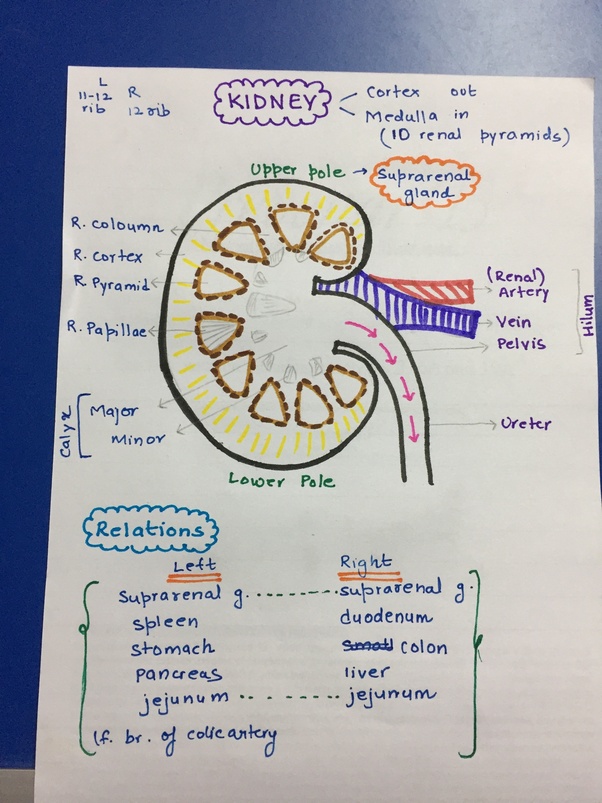 L
11-12
rib
R
12 rib
KIDNEY
Cortex out
Medulla in
(10 renal pyramids)
Upper pole → Suprarenal
gland
R. coloumn
R. cortex
R. Pyramid
R. Papillae
Calyx
Major
Minor
(Renal)
Artery
Vein
Pelvis
Hilum
Ureter
Lower Pole
Relations
Left Right
Suprarenal g. suprarenal g.
spleen duodenum
stomach small colon
pancreas liver
jejunum jejunum
lf. br. of colic artery